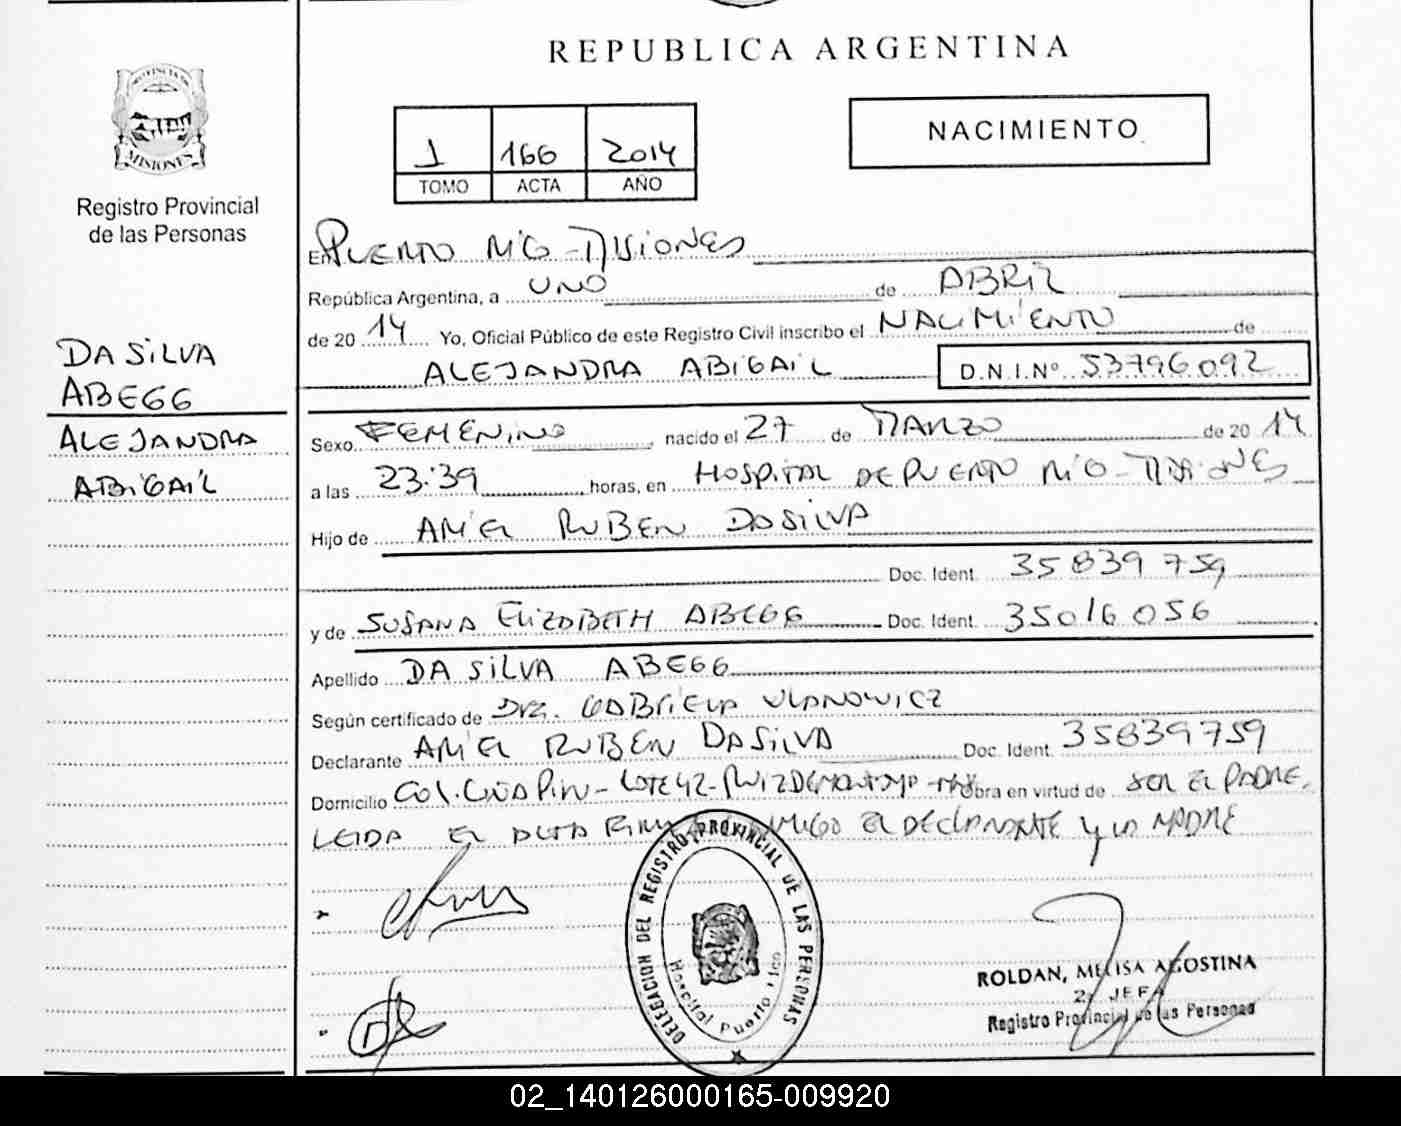 REPUBLICA ARGENTINA
PROVINCIA DE
MISIONES
Registro Provincial
de las Personas
1 166 2014
TOMO ACTA AÑO
NACIMIENTO
En PUERTO RICO - MISIONES
República Argentina, a UNO de ABRIL
de 2014 Yo, Oficial Público de este Registro Civil inscribo el NACIMIENTO de
ALEJANDRA ABIGAIL D.N.I.Nº 53796092
DA SILVA
ABEGG
ALEJANDRA
ABIGAIL
Sexo FEMENINO, nacido el 27 de MARZO de 2014
a las 23:39 horas, en HOSPITAL DE PUERTO RICO - MISIONES
Hijo de ARIEL RUBEN DASILVA
Doc. Ident. 35839759
y de SUSANA ELIZABETH ABEGG Doc. Ident. 35016056
Apellido DA SILVA ABEGG
Según certificado de Dra. GABRIELA ULANOWICZ
Declarante ARIEL RUBEN DA SILVA Doc. Ident. 35839759
Domicilio COL. - LOTE 42 - Obra en virtud de SER EL PADRE.
LEIDA EL ACTA EL DECLARANTE y LA MADRE
DELEGACION DEL REGISTRO PROVINCIAL DE LAS PERSONAS
Hospital Puerto Rico
ROLDAN, MELISA AGOSTINA
2º JEFA
Registro Provincial de las Personas
02_140126000165-009920